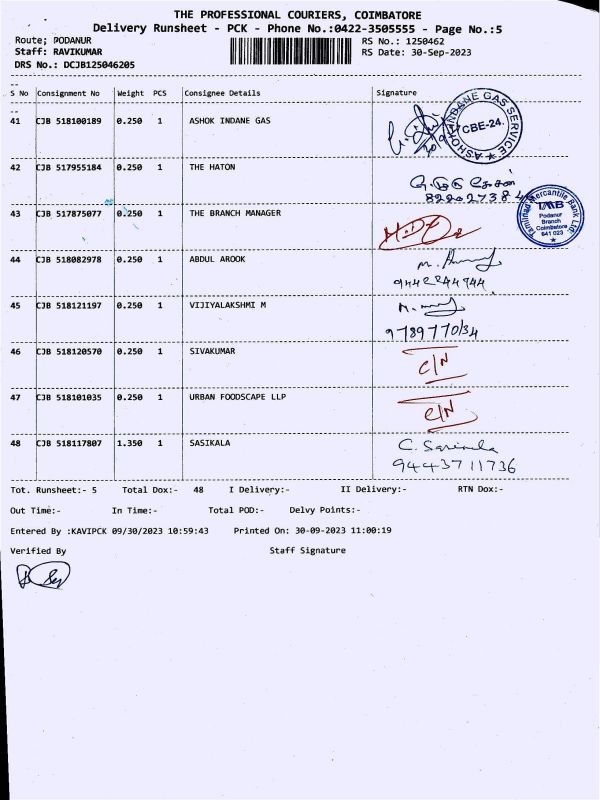 THE PROFESSIONAL COURIERS, COIMBATORE
Delivery Runsheet - PCK - Phone No.:0422-3505555 - Page No.:5
Route; PODANUR RS No.: 1250462
Staff: RAVIKUMAR RS Date: 30-Sep-2023
DRS No.: DCJB125046205
S No Consignment No Weight PCS Consignee Details Signature
41 CJB 518100189 0.250 1 ASHOK INDANE GAS
ASHOK INDANE GAS SERVICE
CBE-24.
42 CJB 517955184 0.250 1 THE HATON
43 CJB 517875077 0.250 1 THE BRANCH MANAGER
Tamilnad Mercantile Bank Ltd.
TMB
Podanur
Branch
Coimbatore
641 023
44 CJB 518082978 0.250 1 ABDUL AROOK
9442244944
45 CJB 518121197 0.250 1 VIJIYALAKSHMI M
9789770134
46 CJB 518120570 0.250 1 SIVAKUMAR C/N
47 CJB 518101035 0.250 1 URBAN FOODSCAPE LLP C/N
48 CJB 518117807 1.350 1 SASIKALA
9443711736
Tot. Runsheet:- 5 Total Dox:- 48 I Delivery:- II Delivery:- RTN Dox:-
Out Time:- In Time:- Total POD:- Delvy Points:-
Entered By :KAVIPCK 09/30/2023 10:59:43 Printed On: 30-09-2023 11:00:19
Verified By Staff Signature